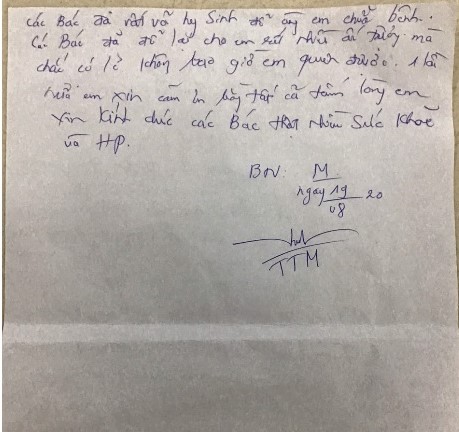 các Bác đã rất vã hy Sinh để ông em chữa bệnh.
Các Bác đã để lại cho em rất nhiều ấn tượng mà
chắc có lẽ không bao giờ em quên được. 1 lần
nữa em xin cảm ơn bằng tất cả tấm lòng em
Xin Kính chúc các Bác thật nhiều Sức Khoẻ
và HP.
BN: M
ngày 19
08 20
TTM